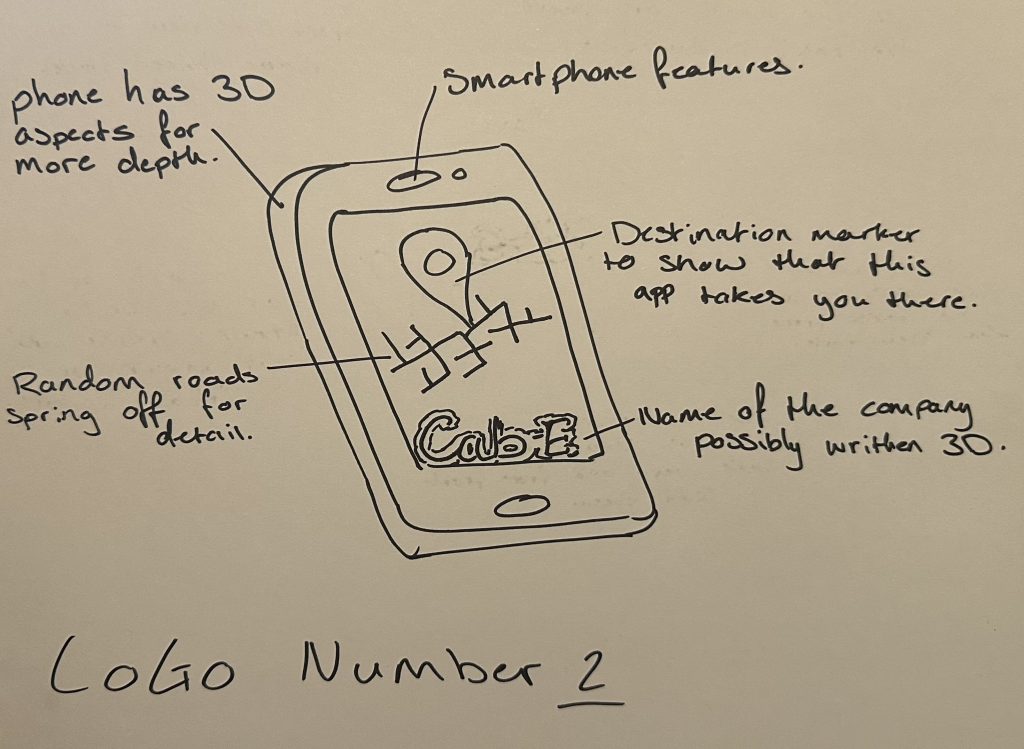 Smartphone features.
phone has 3D
aspects for
more depth.
Destination marker
to show that this
app takes you there.
Random roads
spring off for
detail.
Cab-E
Name of the company
possibly writhen 3D.
LoGo Number 2